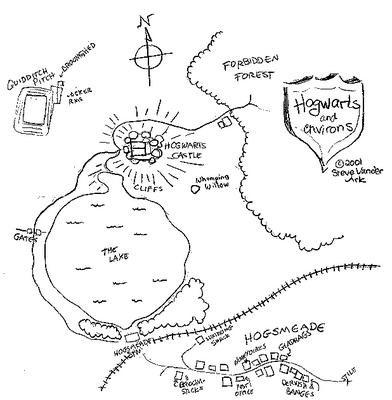 N
QUIDDITCH
PITCH
BROOMSHED
LOCKER
RMS
FORBIDDEN
FOREST
Hogwarts
and
environs
©2001
Steve Vander
Ark
HOGWARTS
CASTLE
Whomping
Willow
CLIFFS
GATES
THE
LAKE
HOGSMEADE
STN
SHRIEKING
SHACK
HOGSMEADE
HONEYDUKES
GLADRAGS
3 BROOM-
STICKS
POST
OFFICE
DERVISH &
BANGES
STILE